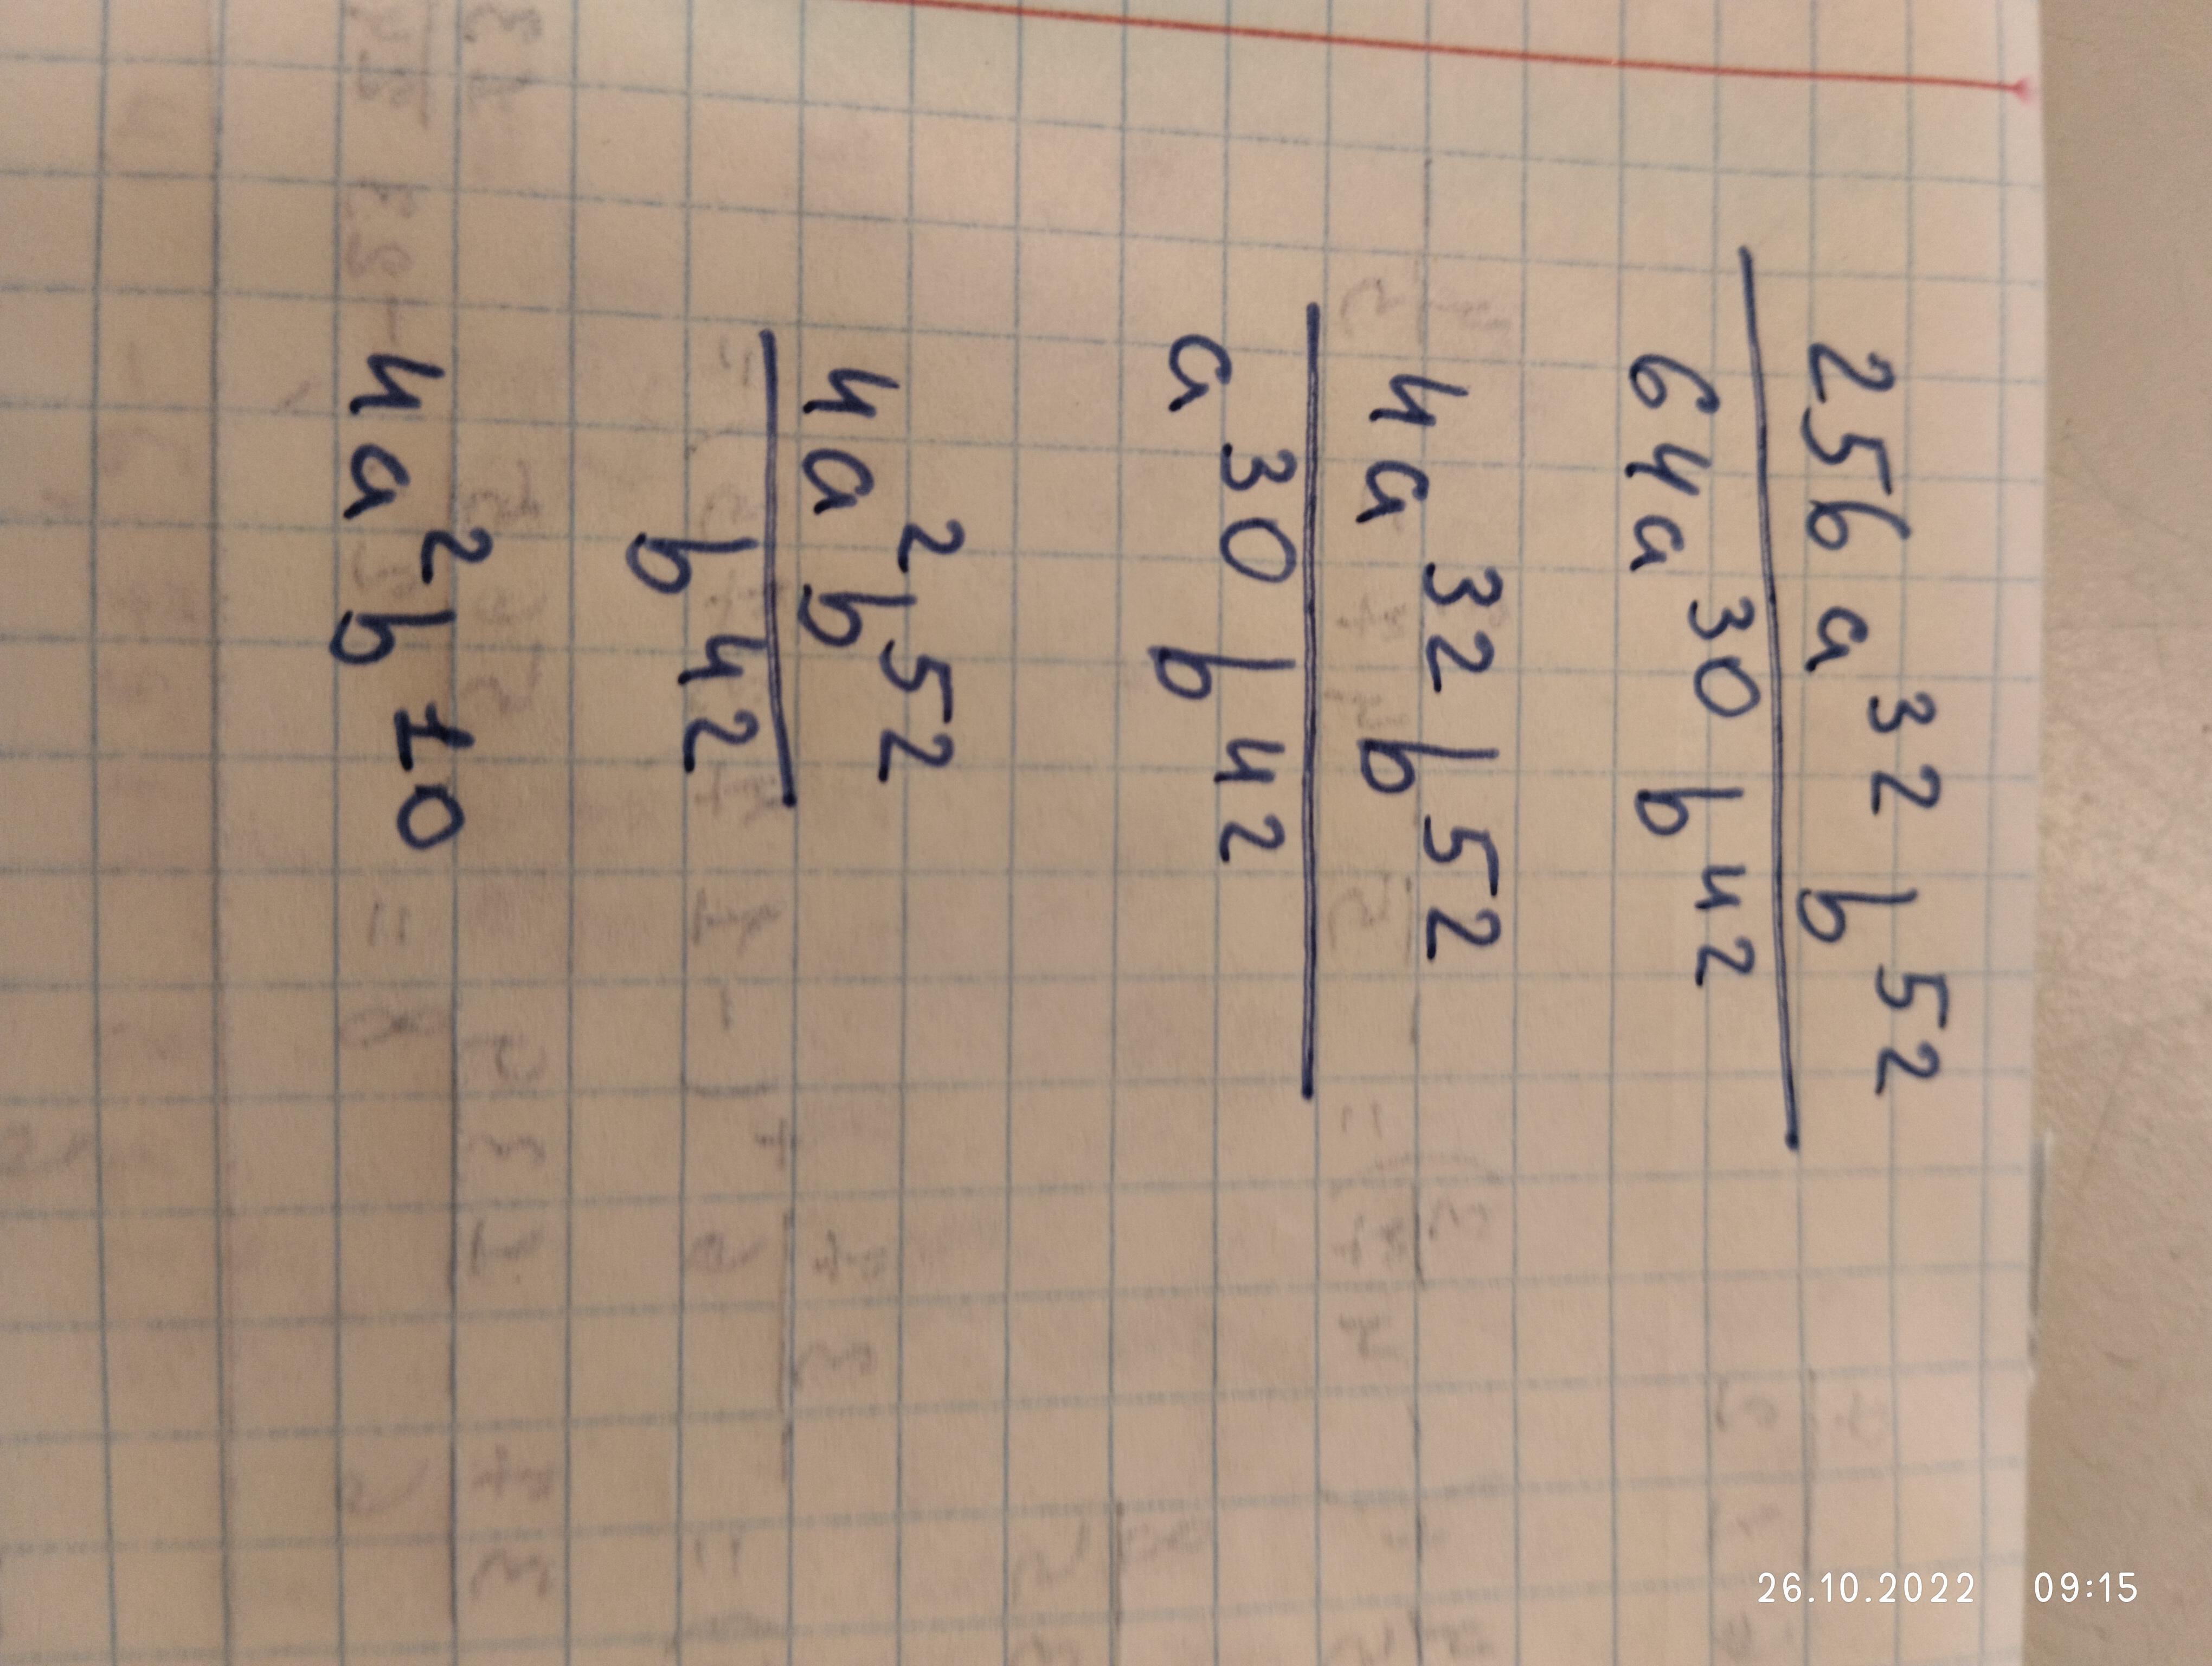 256a³²b⁵²
64a³⁰b⁴²
4a³²b⁵²
a³⁰b⁴²
4a²b⁵²
b⁴²
4a²b¹⁰
26.10.2022 09:15